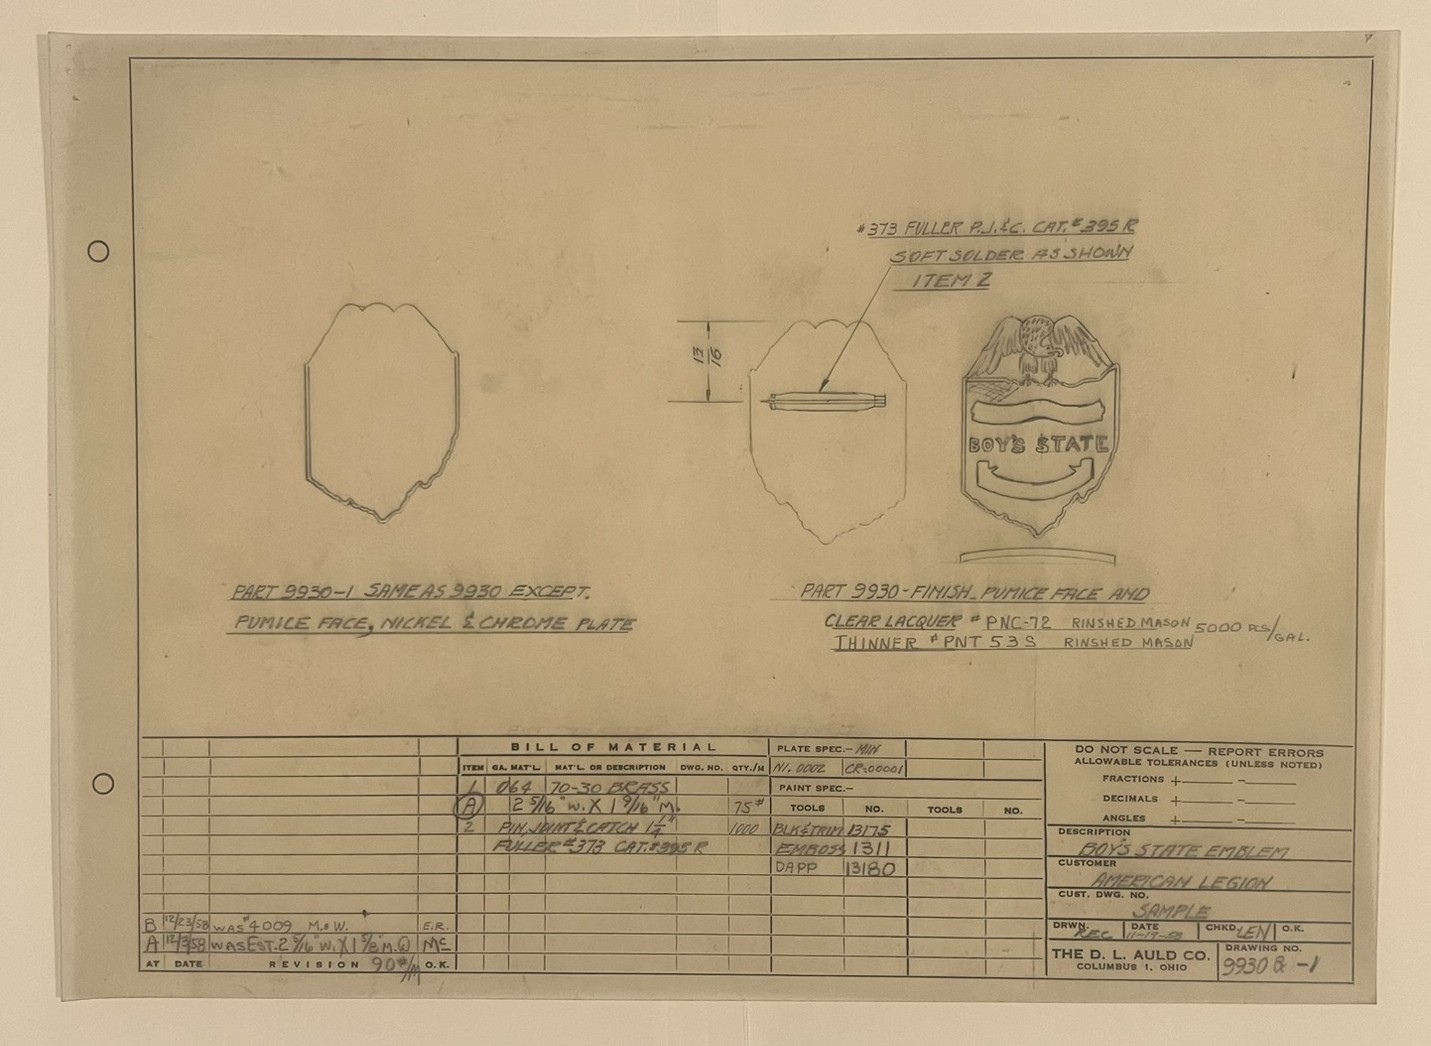 #373 FULLER P.J.&C. CAT.#395 R
SOFT SOLDER AS SHOWN
ITEM 2
13/16
BOY'S STATE
PART 9930-1 SAME AS 9930 EXCEPT.
PUMICE FACE, NICKEL & CHROME PLATE
PART 9930-FINISH- PUMICE FACE AND
CLEAR LACQUER #PNC-72 RINSHED MASON 5000 PCS/GAL.
THINNER #PNT 53S RINSHED MASON
BILL OF MATERIAL
ITEM GA. MAT'L. MAT'L. OR DESCRIPTION DWG. NO. QTY./M
1 064 70-30 BRASS
A 2 5/16" W. X 1 9/16" M. 75#
2 PIN, JOINT & CATCH 1 1/4" 1000
FULLER #373 CAT.#395 R
PLATE SPEC.- MIN
NI. 0002 CR-00001
PAINT SPEC.-
TOOLS NO. TOOLS NO.
BLK & TRIM 13175
EMBOSS 1311
DAPP 13180
B 12/23/58 WAS #4009 M.&W. E.R.
A 12/3/58 WAS EST. 2 5/16" W. X 1 5/8" M. @ Mc
90#/M
AT DATE REVISION O.K.
DO NOT SCALE — REPORT ERRORS
ALLOWABLE TOLERANCES (UNLESS NOTED)
FRACTIONS + -
DECIMALS + -
ANGLES + -
DESCRIPTION
BOY'S STATE EMBLEM
CUSTOMER
AMERICAN LEGION
CUST. DWG. NO.
SAMPLE
DRWN. REC DATE 11-19-58 CHKD. LEN O.K.
THE D. L. AULD CO.
COLUMBUS 1, OHIO
DRAWING NO.
9930 & -1